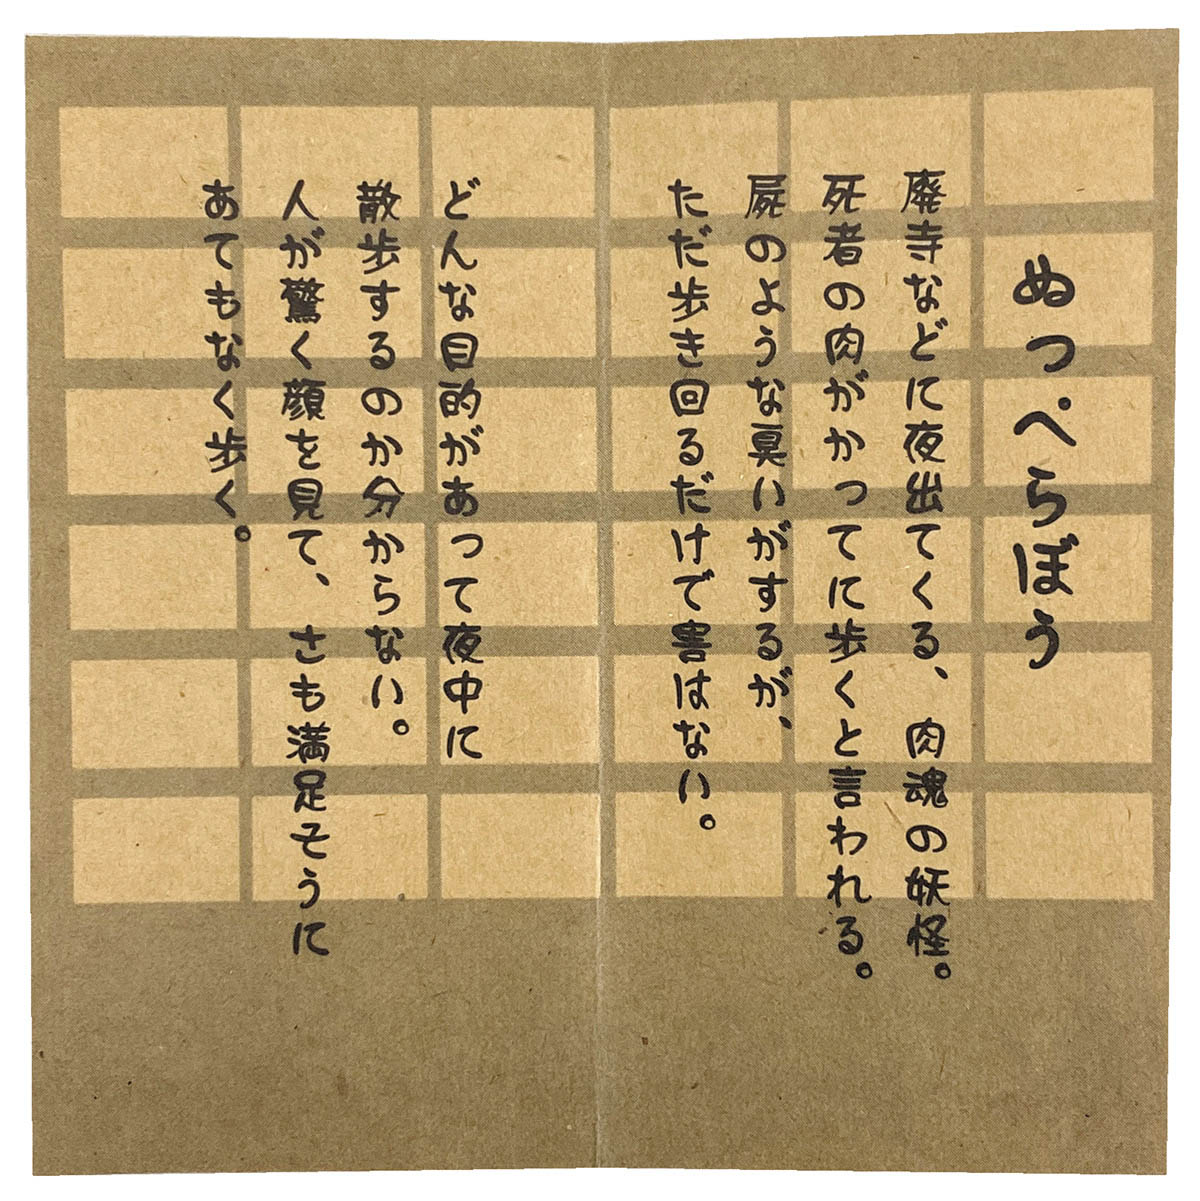 ぬっぺらぼう
廃寺などに夜出てくる、肉魂の妖怪。
死者の肉がかってに歩くと言われる。
屍のような臭いがするが、
ただ歩き回るだけで害はない。
どんな目的があって夜中に
散歩するのか分からない。
人が驚く顔を見て、さも満足そうに
あてもなく歩く。